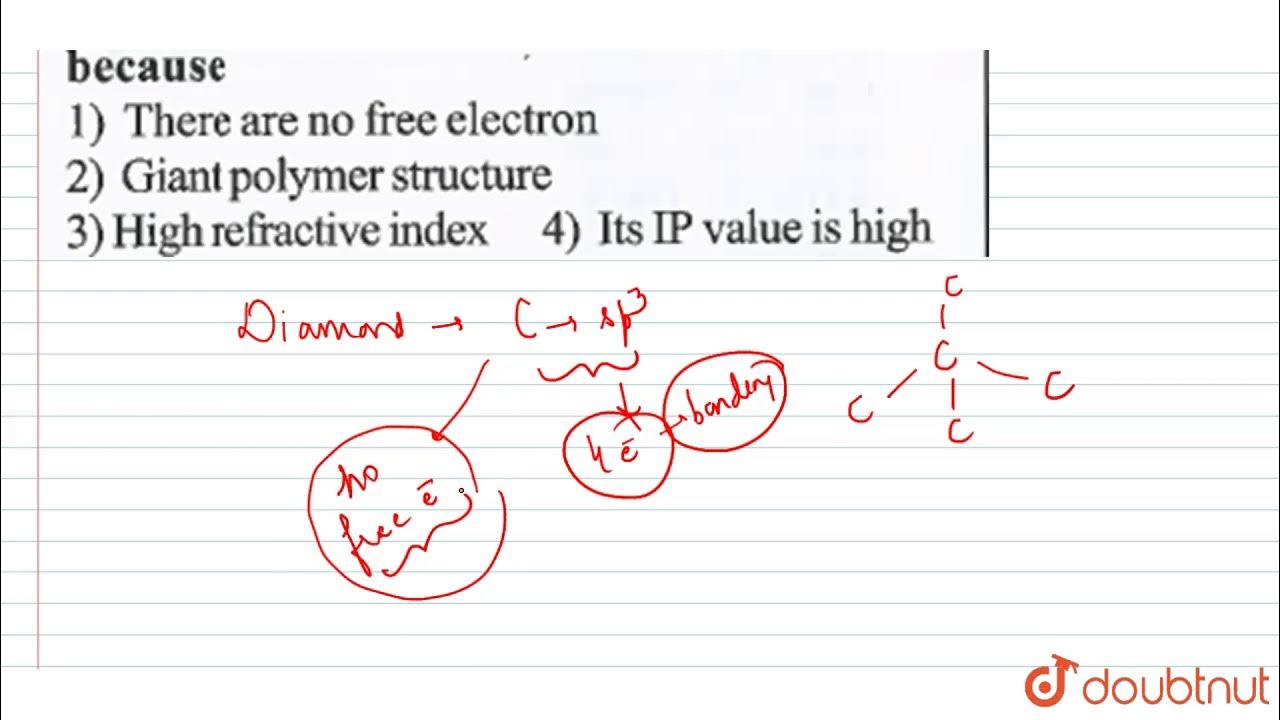 because
1) There are no free electron
2) Giant polymer structure
3) High refractive index 4) Its IP value is high
Diamond → C → sp³
4 ē → bonding
no
free ē
C
C
C C
C
doubtnut